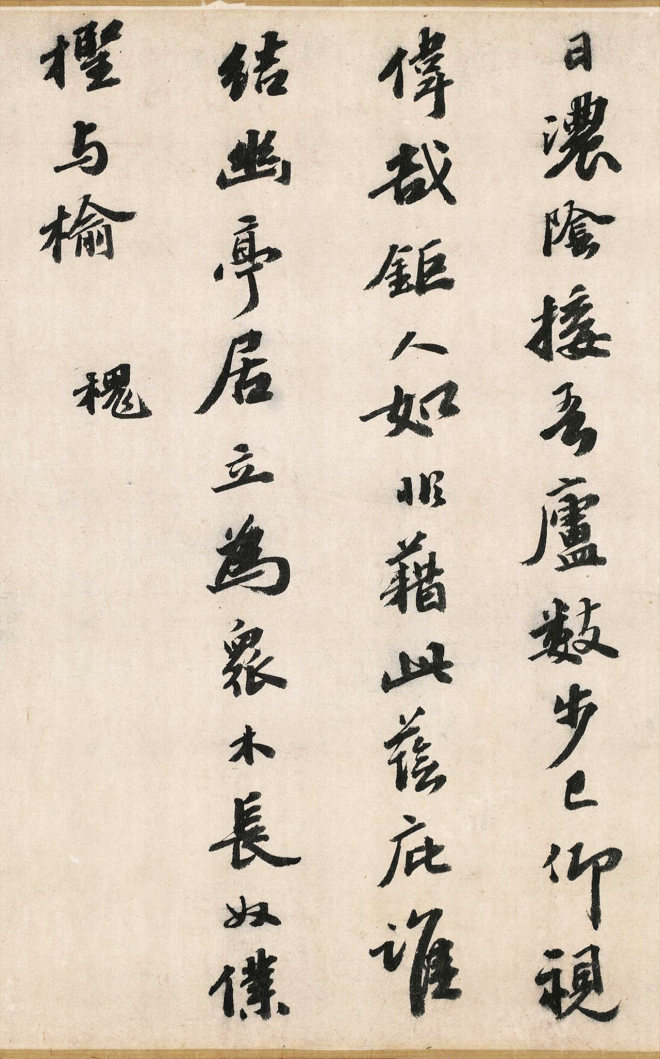 日濃陰接吾廬數步已仰視
偉哉鉅人如昵藉此蔭庇誰
結幽亭居立為衆木長奴僕
檉与榆
槐